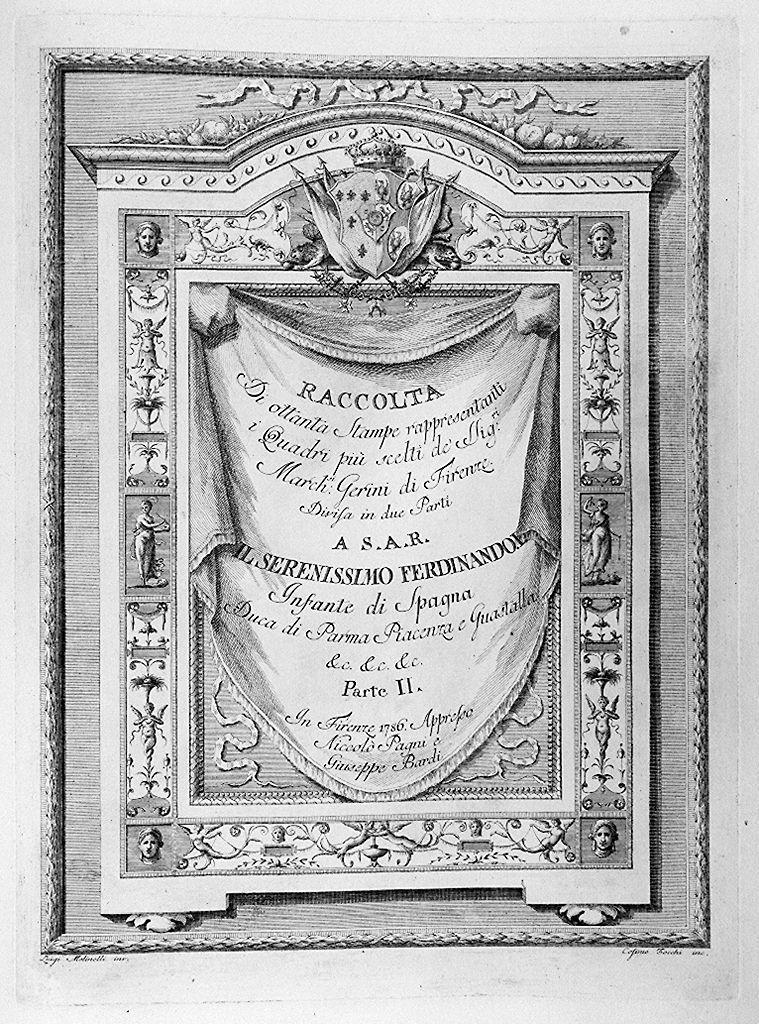 RACCOLTA
Di ottanta Stampe rappresentanti
i Quadri più scelti de' Sig.ri
March.i Gerini di Firenze
Divisa in due Parti
A S.A.R.
IL SERENISSIMO FERDINANDO I.
Infante di Spagna
Duca di Parma Piacenza e Guastalla
&c. &c. &c.
Parte II.
In Firenze 1786. Appresso
Niccolò Pagni e
Giuseppe Bardi
Luigi Molinelli inv.
Cosimo Zocchi inc.